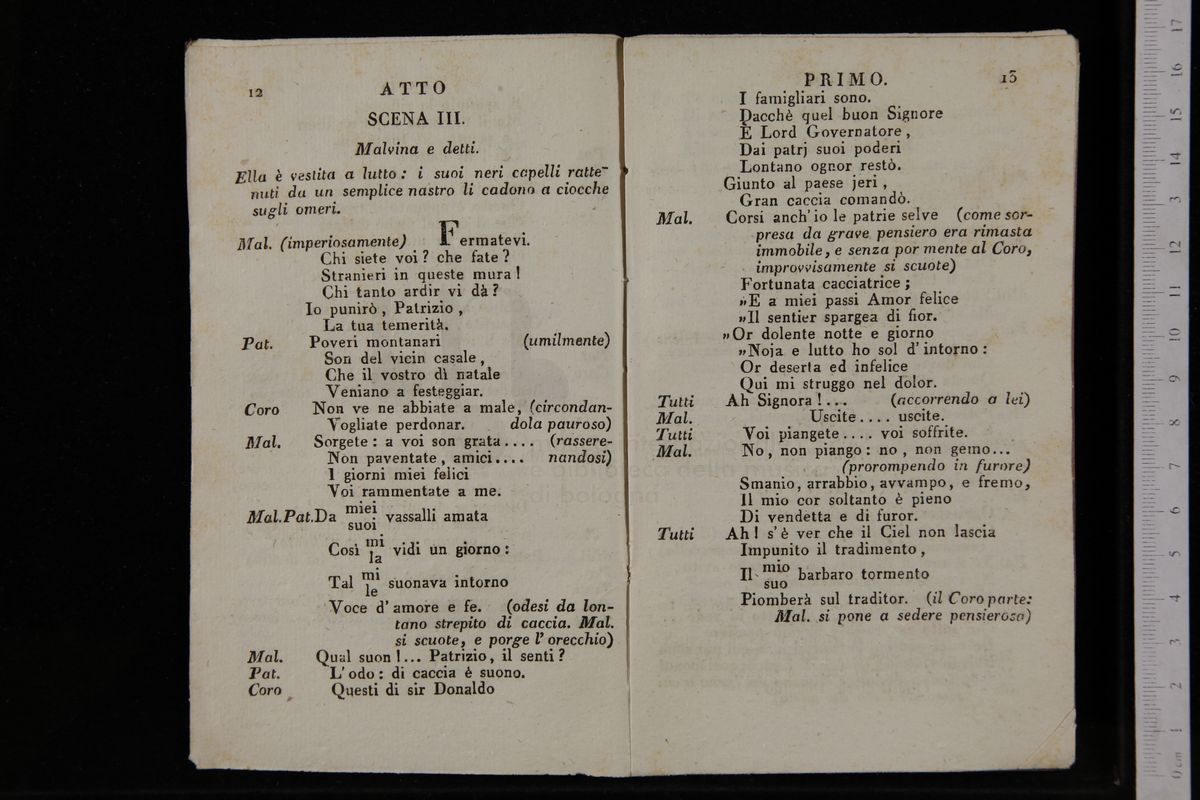 12
ATTO
SCENA III.
Malvina e detti.
Ella è vestita a lutto: i suoi neri capelli ratte-
nuti da un semplice nastro li cadono a ciocche
sugli omeri.
Mal. (imperiosamente) Fermatevi.
Chi siete voi? che fate?
Stranieri in queste mura!
Chi tanto ardir vi dà?
Io punirò, Patrizio,
La tua temerità.
Pat. Poveri montanari (umilmente)
Son del vicin casale,
Che il vostro dì natale
Veniano a festeggiar.
Coro Non ve ne abbiate a male, (circondan-
Vogliate perdonar. dola pauroso)
Mal. Sorgete: a voi son grata.... (rassere-
Non paventate, amici.... nandosi)
I giorni miei felici
Voi rammentate a me.
Mal.Pat.Da miei vassalli amata
suoi
Così mi vidi un giorno:
la
Tal mi suonava intorno
le
Voce d'amore e fe. (odesi da lon-
tano strepito di caccia. Mal.
si scuote, e porge l'orecchio)
Mal. Qual suon!... Patrizio, il senti?
Pat. L'odo: di caccia è suono.
Coro Questi di sir Donaldo
PRIMO.
13
I famigliari sono.
Dacchè quel buon Signore
È Lord Governatore,
Dai patrj suoi poderi
Lontano ognor restò.
Giunto al paese jeri,
Gran caccia comandò.
Mal. Corsi anch'io le patrie selve (come sor-
presa da grave pensiero era rimasta
immobile, e senza por mente al Coro,
improvvisamente si scuote)
Fortunata cacciatrice;
»E a miei passi Amor felice
»Il sentier spargea di fior.
»Or dolente notte e giorno
»Noja e lutto ho sol d'intorno:
Or deserta ed infelice
Qui mi struggo nel dolor.
Tutti Ah Signora!... (accorrendo a lei)
Mal. Uscite.... uscite.
Tutti Voi piangete.... voi soffrite.
Mal. No, non piango: no, non gemo...
(prorompendo in furore)
Smanio, arrabbio, avvampo, e fremo,
Il mio cor soltanto è pieno
Di vendetta e di furor.
Tutti Ah! s'è ver che il Ciel non lascia
Impunito il tradimento,
Il mio barbaro tormento
suo
Piomberà sul traditor. (il Coro parte:
Mal. si pone a sedere pensierosa)
e biblioteca della musica
di bologna
0 cm 1 2 3 4 5 6 7 8 9 10 11 12 13 14 15 16 17